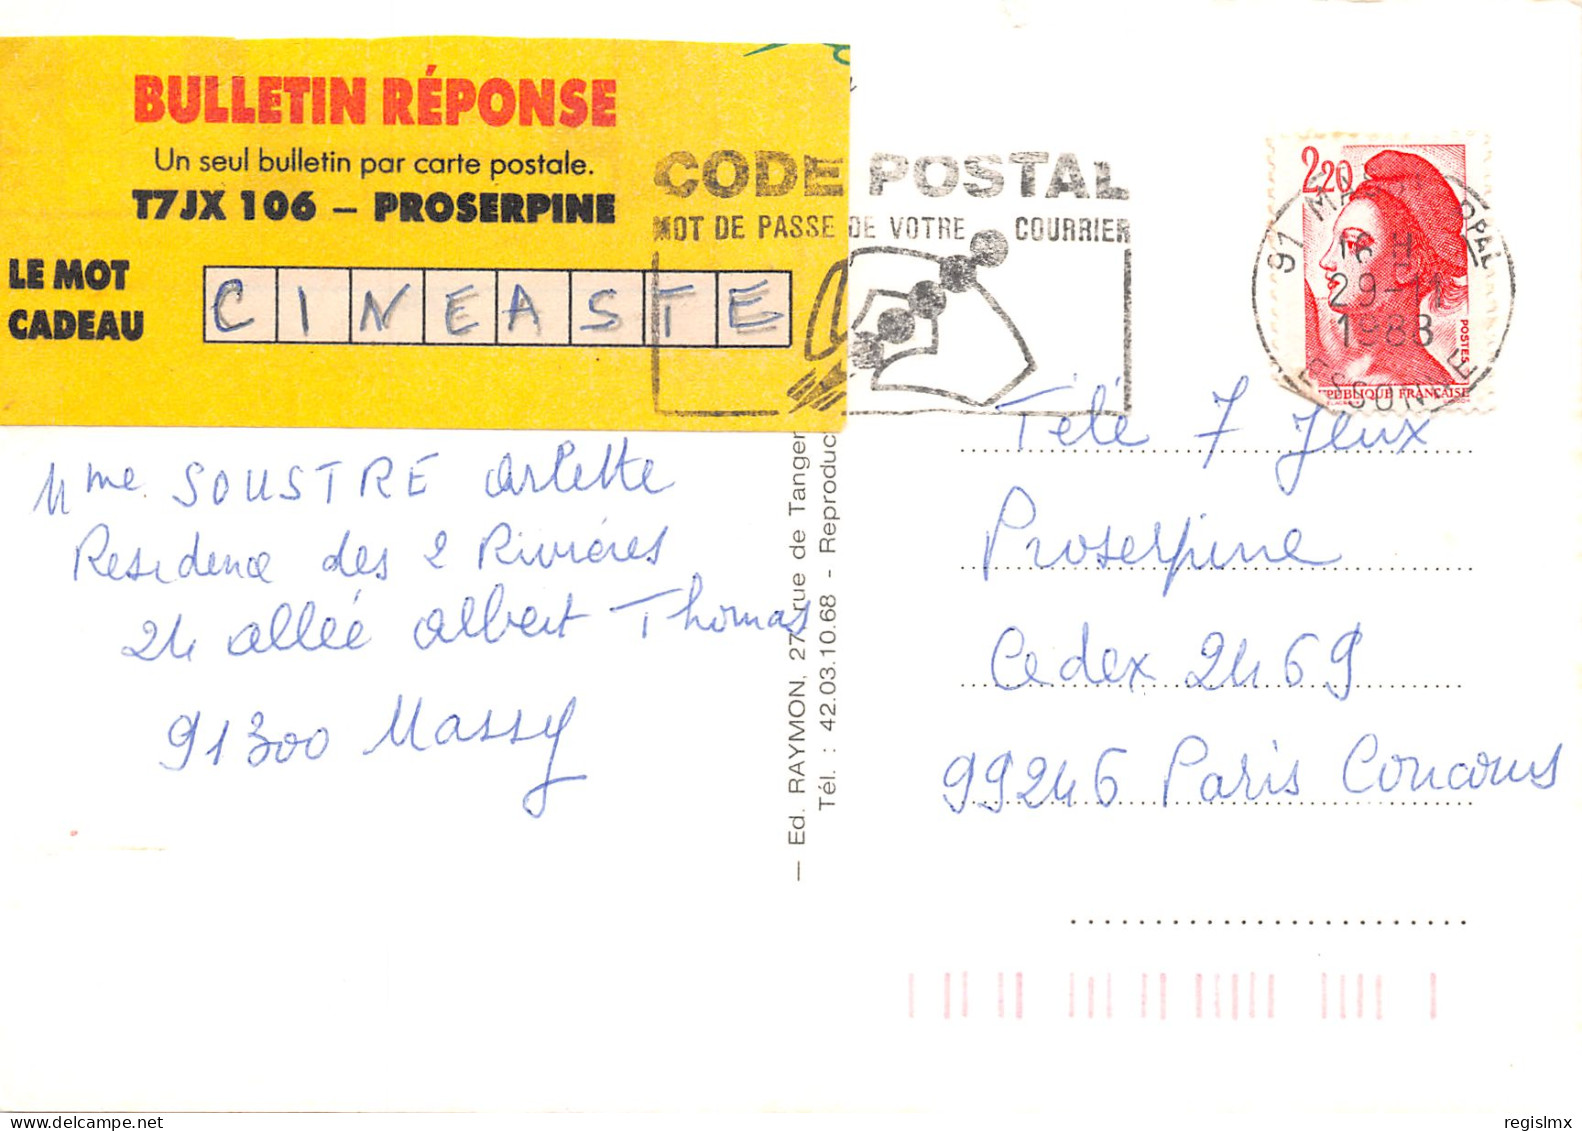 BULLETIN RÉPONSE
Un seul bulletin par carte postale.
T7JX 106 – PROSERPINE
LE MOT
CADEAU
CINEASTE
CODE POSTAL
MOT DE PASSE DE VOTRE COURRIER
2,20
POSTES
REPUBLIQUE FRANÇAISE
91 MASSY PPAL
16 H
29-11
1988
ESSONNE
Mme SOUSTRE Arlette
Residence des 2 Rivières
24 allée Albert Thomas
91300 Massy
— Ed. RAYMON, 27, rue de Tanger
Tél. : 42.03.10.68 - Reproduc
Télé 7 Jeux
Proserpine
Cedex 2469
99246 Paris Concours
regislmx
delcampe.net